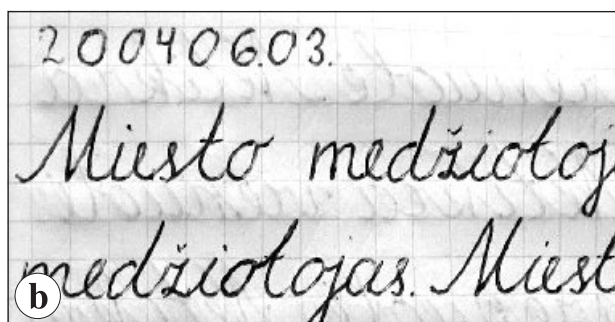 20040603.
Miesto medžiotoj
medžiotojas. Miest
b